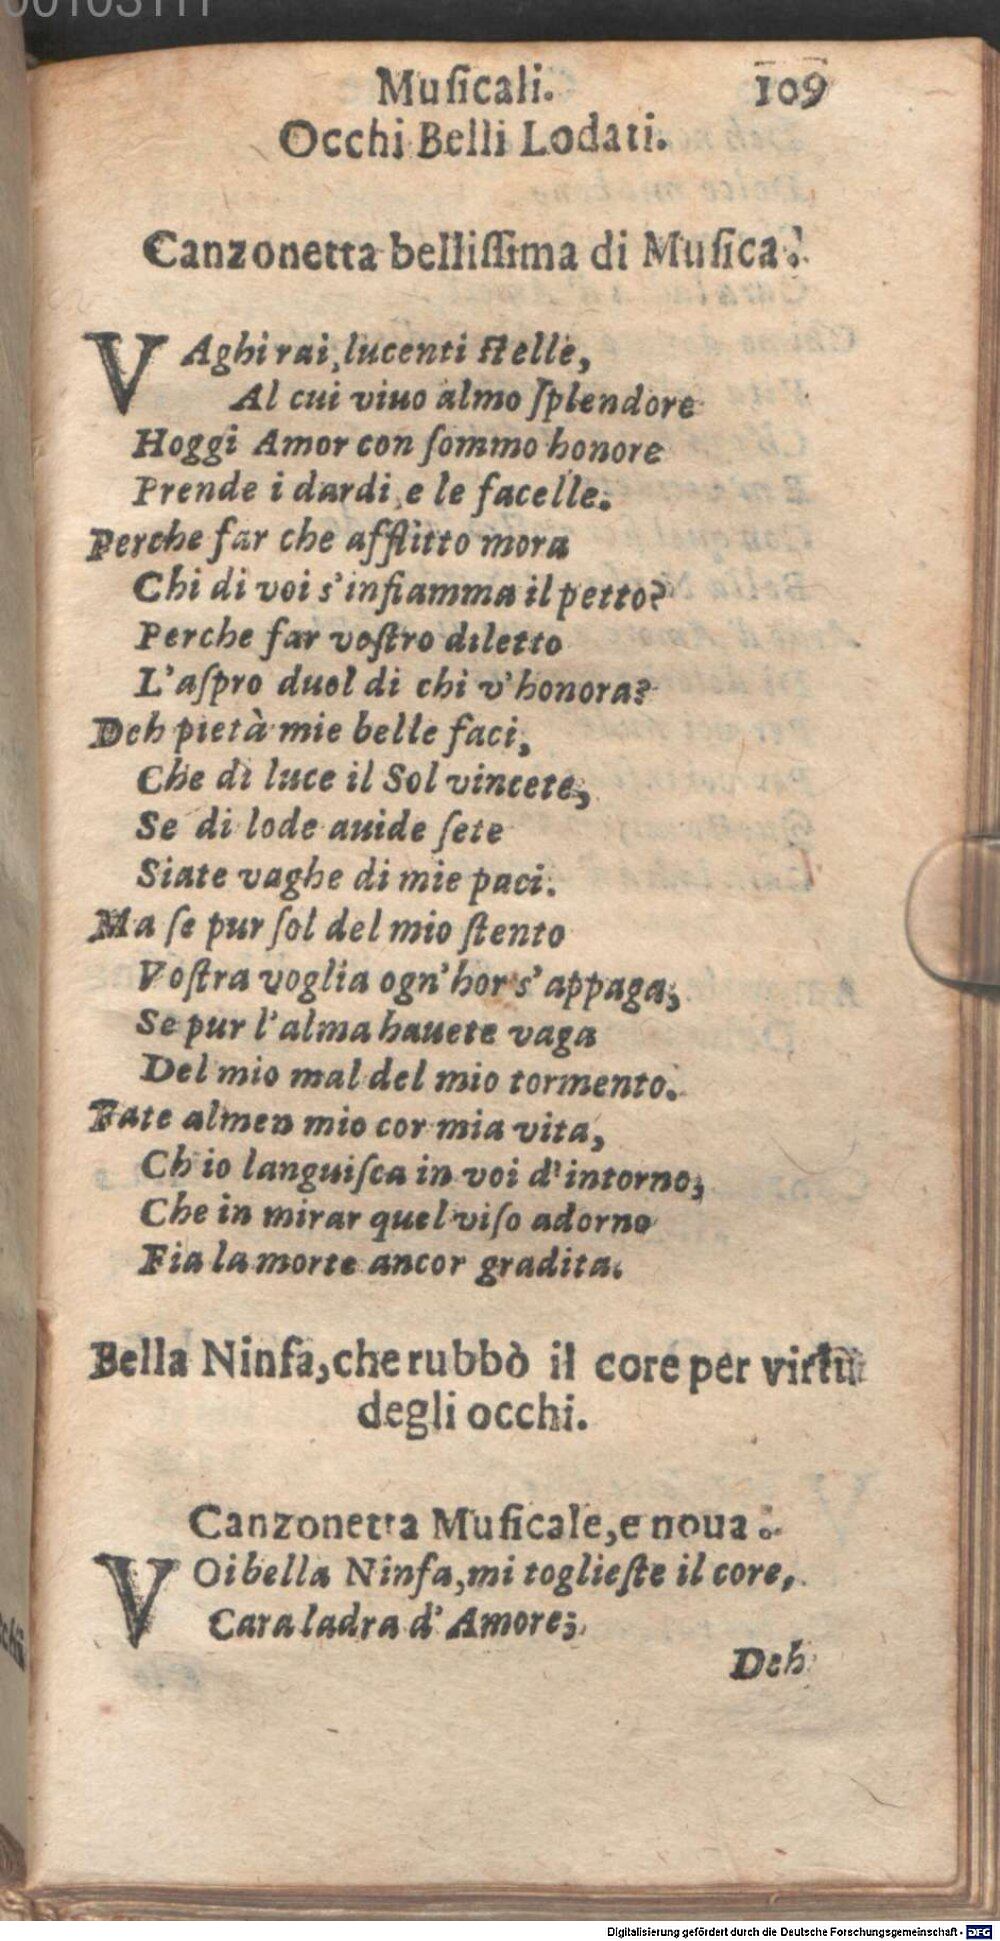 00103111
Muſicali. 109
Occhi Belli Lodati.
Canzonetta belliſſima di Muſica.
VAghi rai, lucenti ſtelle,
Al cui viuo almo ſplendore
Hoggi Amor con ſommo honore
Prende i dardi, e le facelle.
Perche far che afflitto mora
Chi di voi s'infiamma il petto?
Perche far voſtro diletto
L'aſpro duol di chi v'honora?
Deh pietà mie belle faci,
Che di luce il Sol vincete,
Se di lode auide ſete
Siate vaghe di mie paci.
Ma ſe pur ſol del mio ſtento
Voſtra voglia ogn'hor s'appaga;
Se pur l'alma hauete vaga
Del mio mal del mio tormento.
Fate almen mio cor mia vita,
Ch io languiſca in voi d'intorno;
Che in mirar quel viſo adorno
Fia la morte ancor gradita.
Bella Ninfa, che rubbò il core per virtù
degli occhi.
Canzonetta Muſicale, e noua.
VOi bella Ninfa, mi toglieſte il core,
Cara ladra d'Amore;
Deh
Digitalisierung gefördert durch die Deutsche Forschungsgemeinschaft - DFG